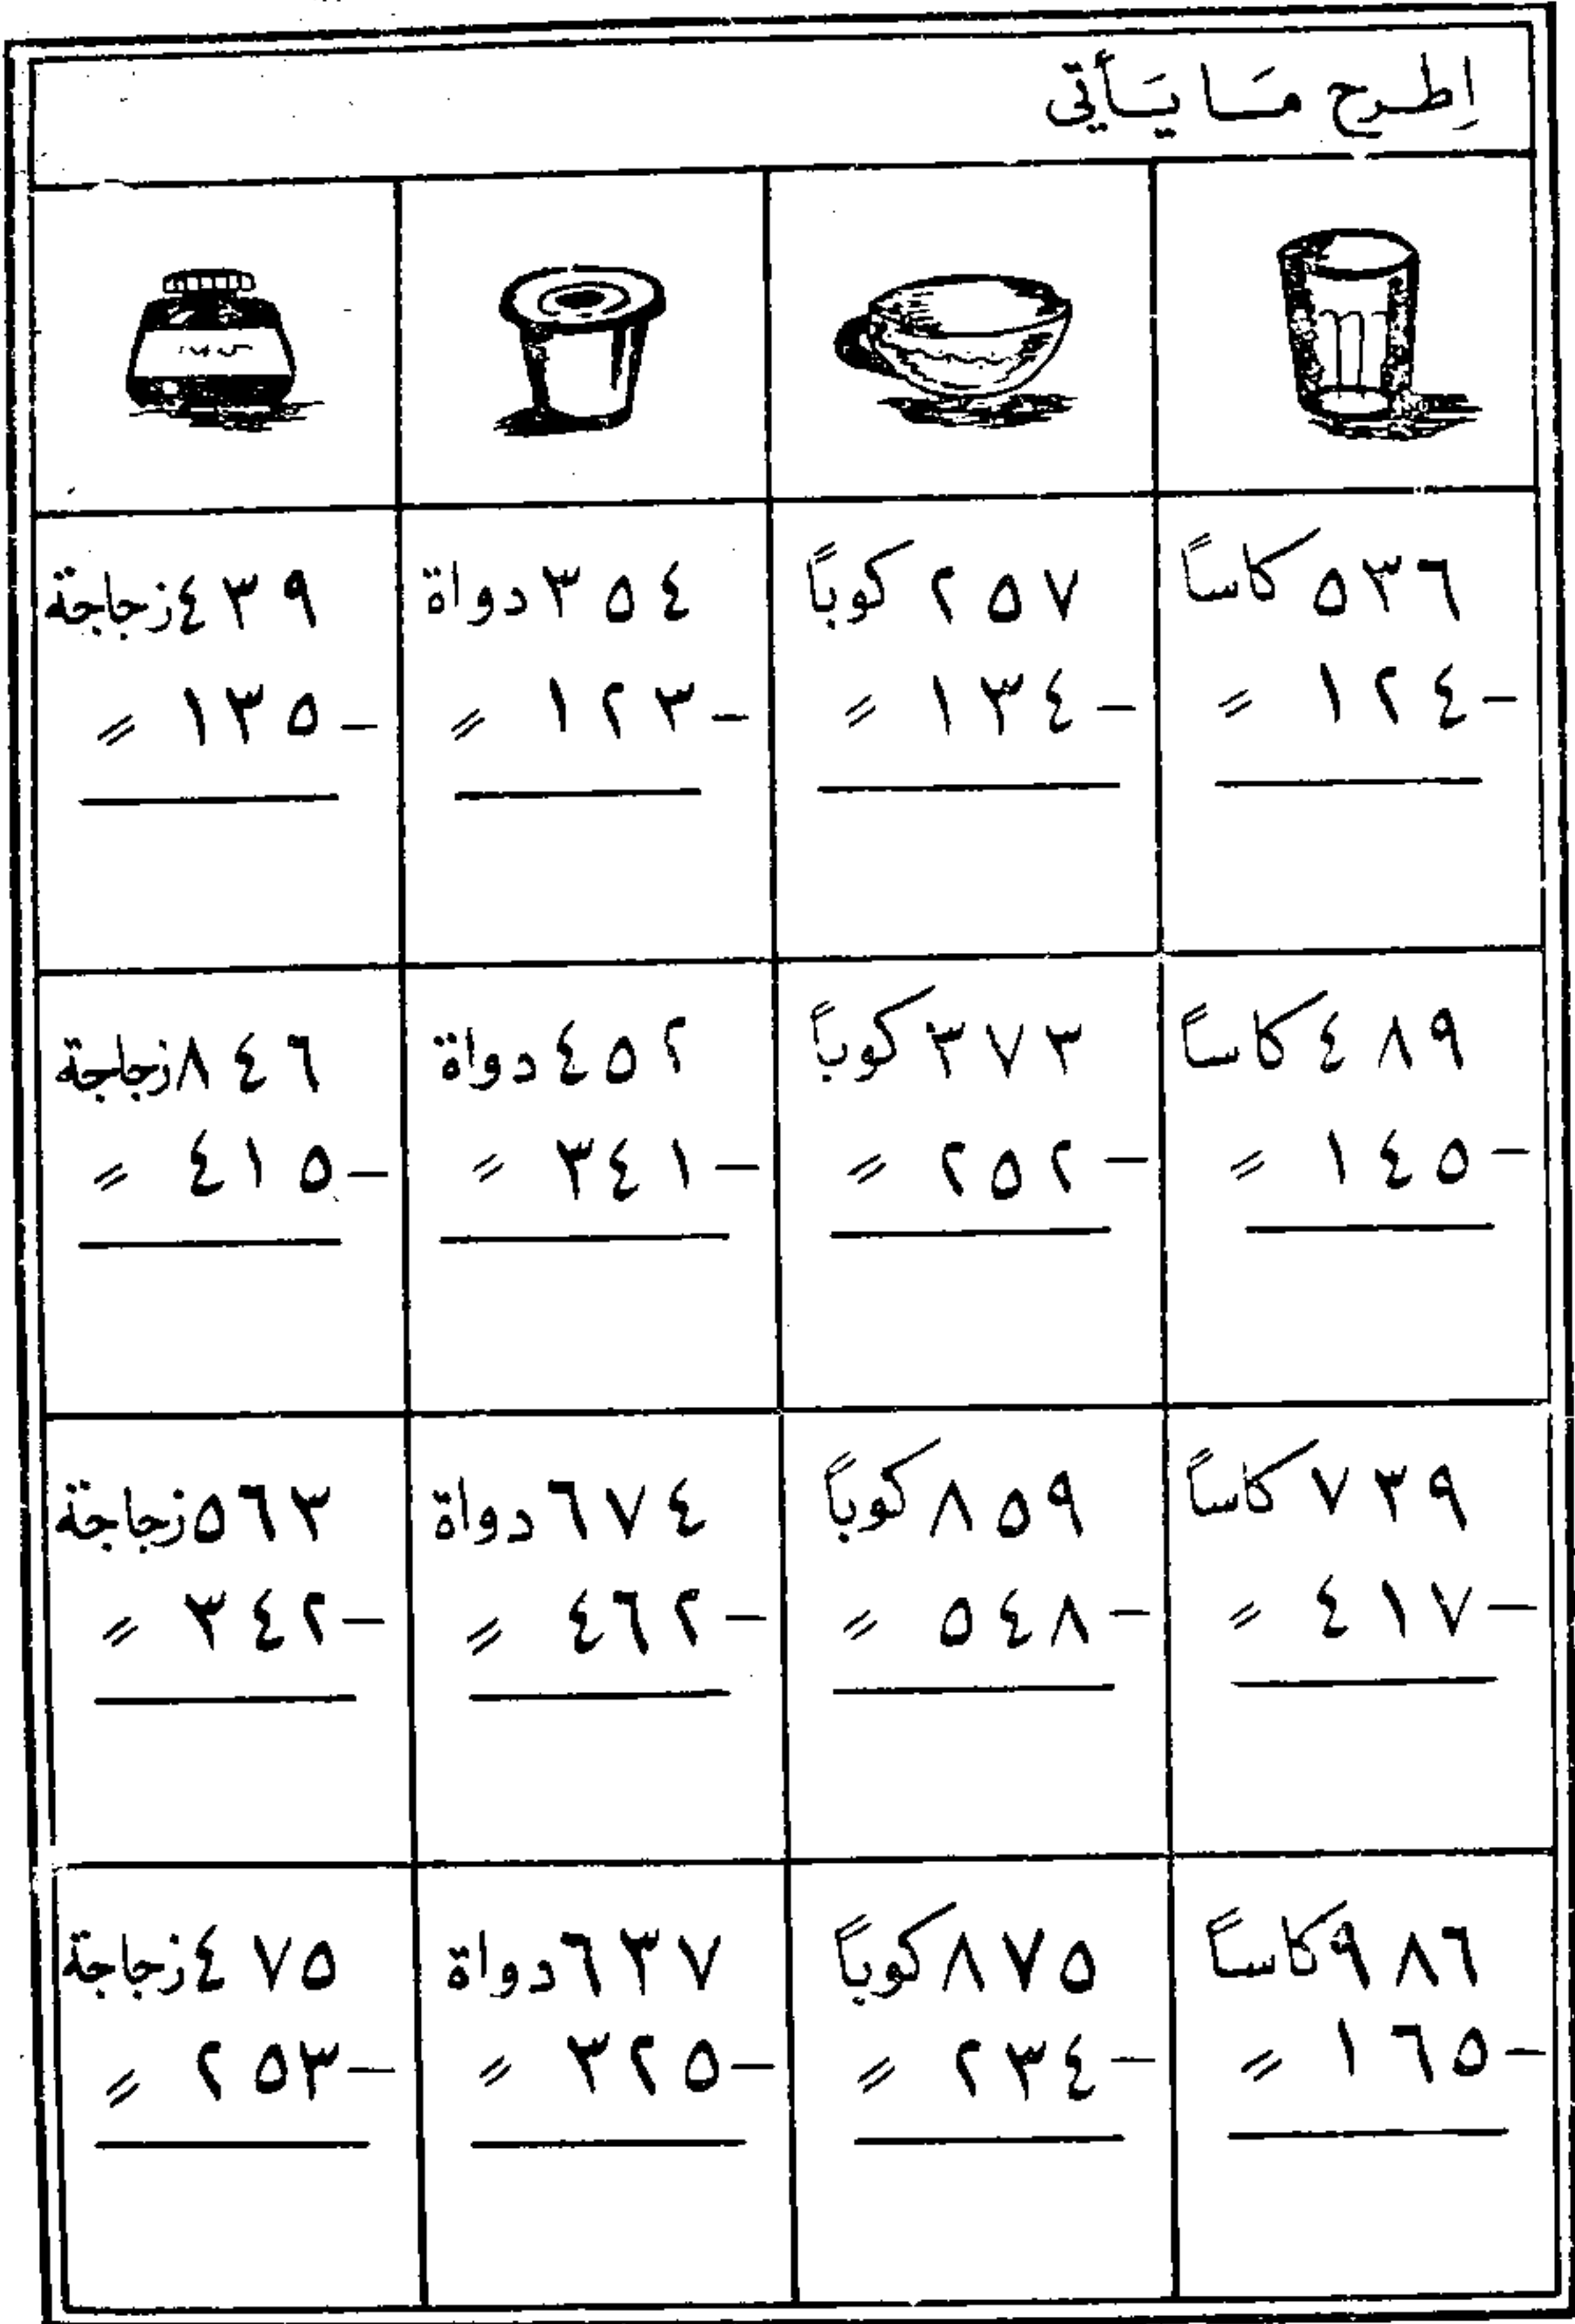 اِطرح مَا يَأتي
٥٣٦ كاساً
- ١٢٤ 〃
٢٥٧ كوباً
- ١٣٤ 〃
٣٥٤ دواة
- ١٢٣ 〃
٤٣٩ زجاجة
- ١٣٥ 〃
٤٨٩ كاساً
- ١٤٥ 〃
٣٧٣ كوباً
- ٢٥٢ 〃
٤٥٢ دواة
- ٣٤١ 〃
٨٤٦ زجاجة
- ٤١٥ 〃
٧٣٩ كاساً
- ٤١٧ 〃
٨٥٩ كوباً
- ٥٤٨ 〃
٦٧٤ دواة
- ٤٦٢ 〃
٥٦٣ زجاجة
- ٣٤٢ 〃
٩٨٦ كاساً
- ١٦٥ 〃
٨٧٥ كوباً
- ٢٣٤ 〃
٦٣٧ دواة
- ٣٢٥ 〃
٤٧٥ زجاجة
- ٢٥٣ 〃